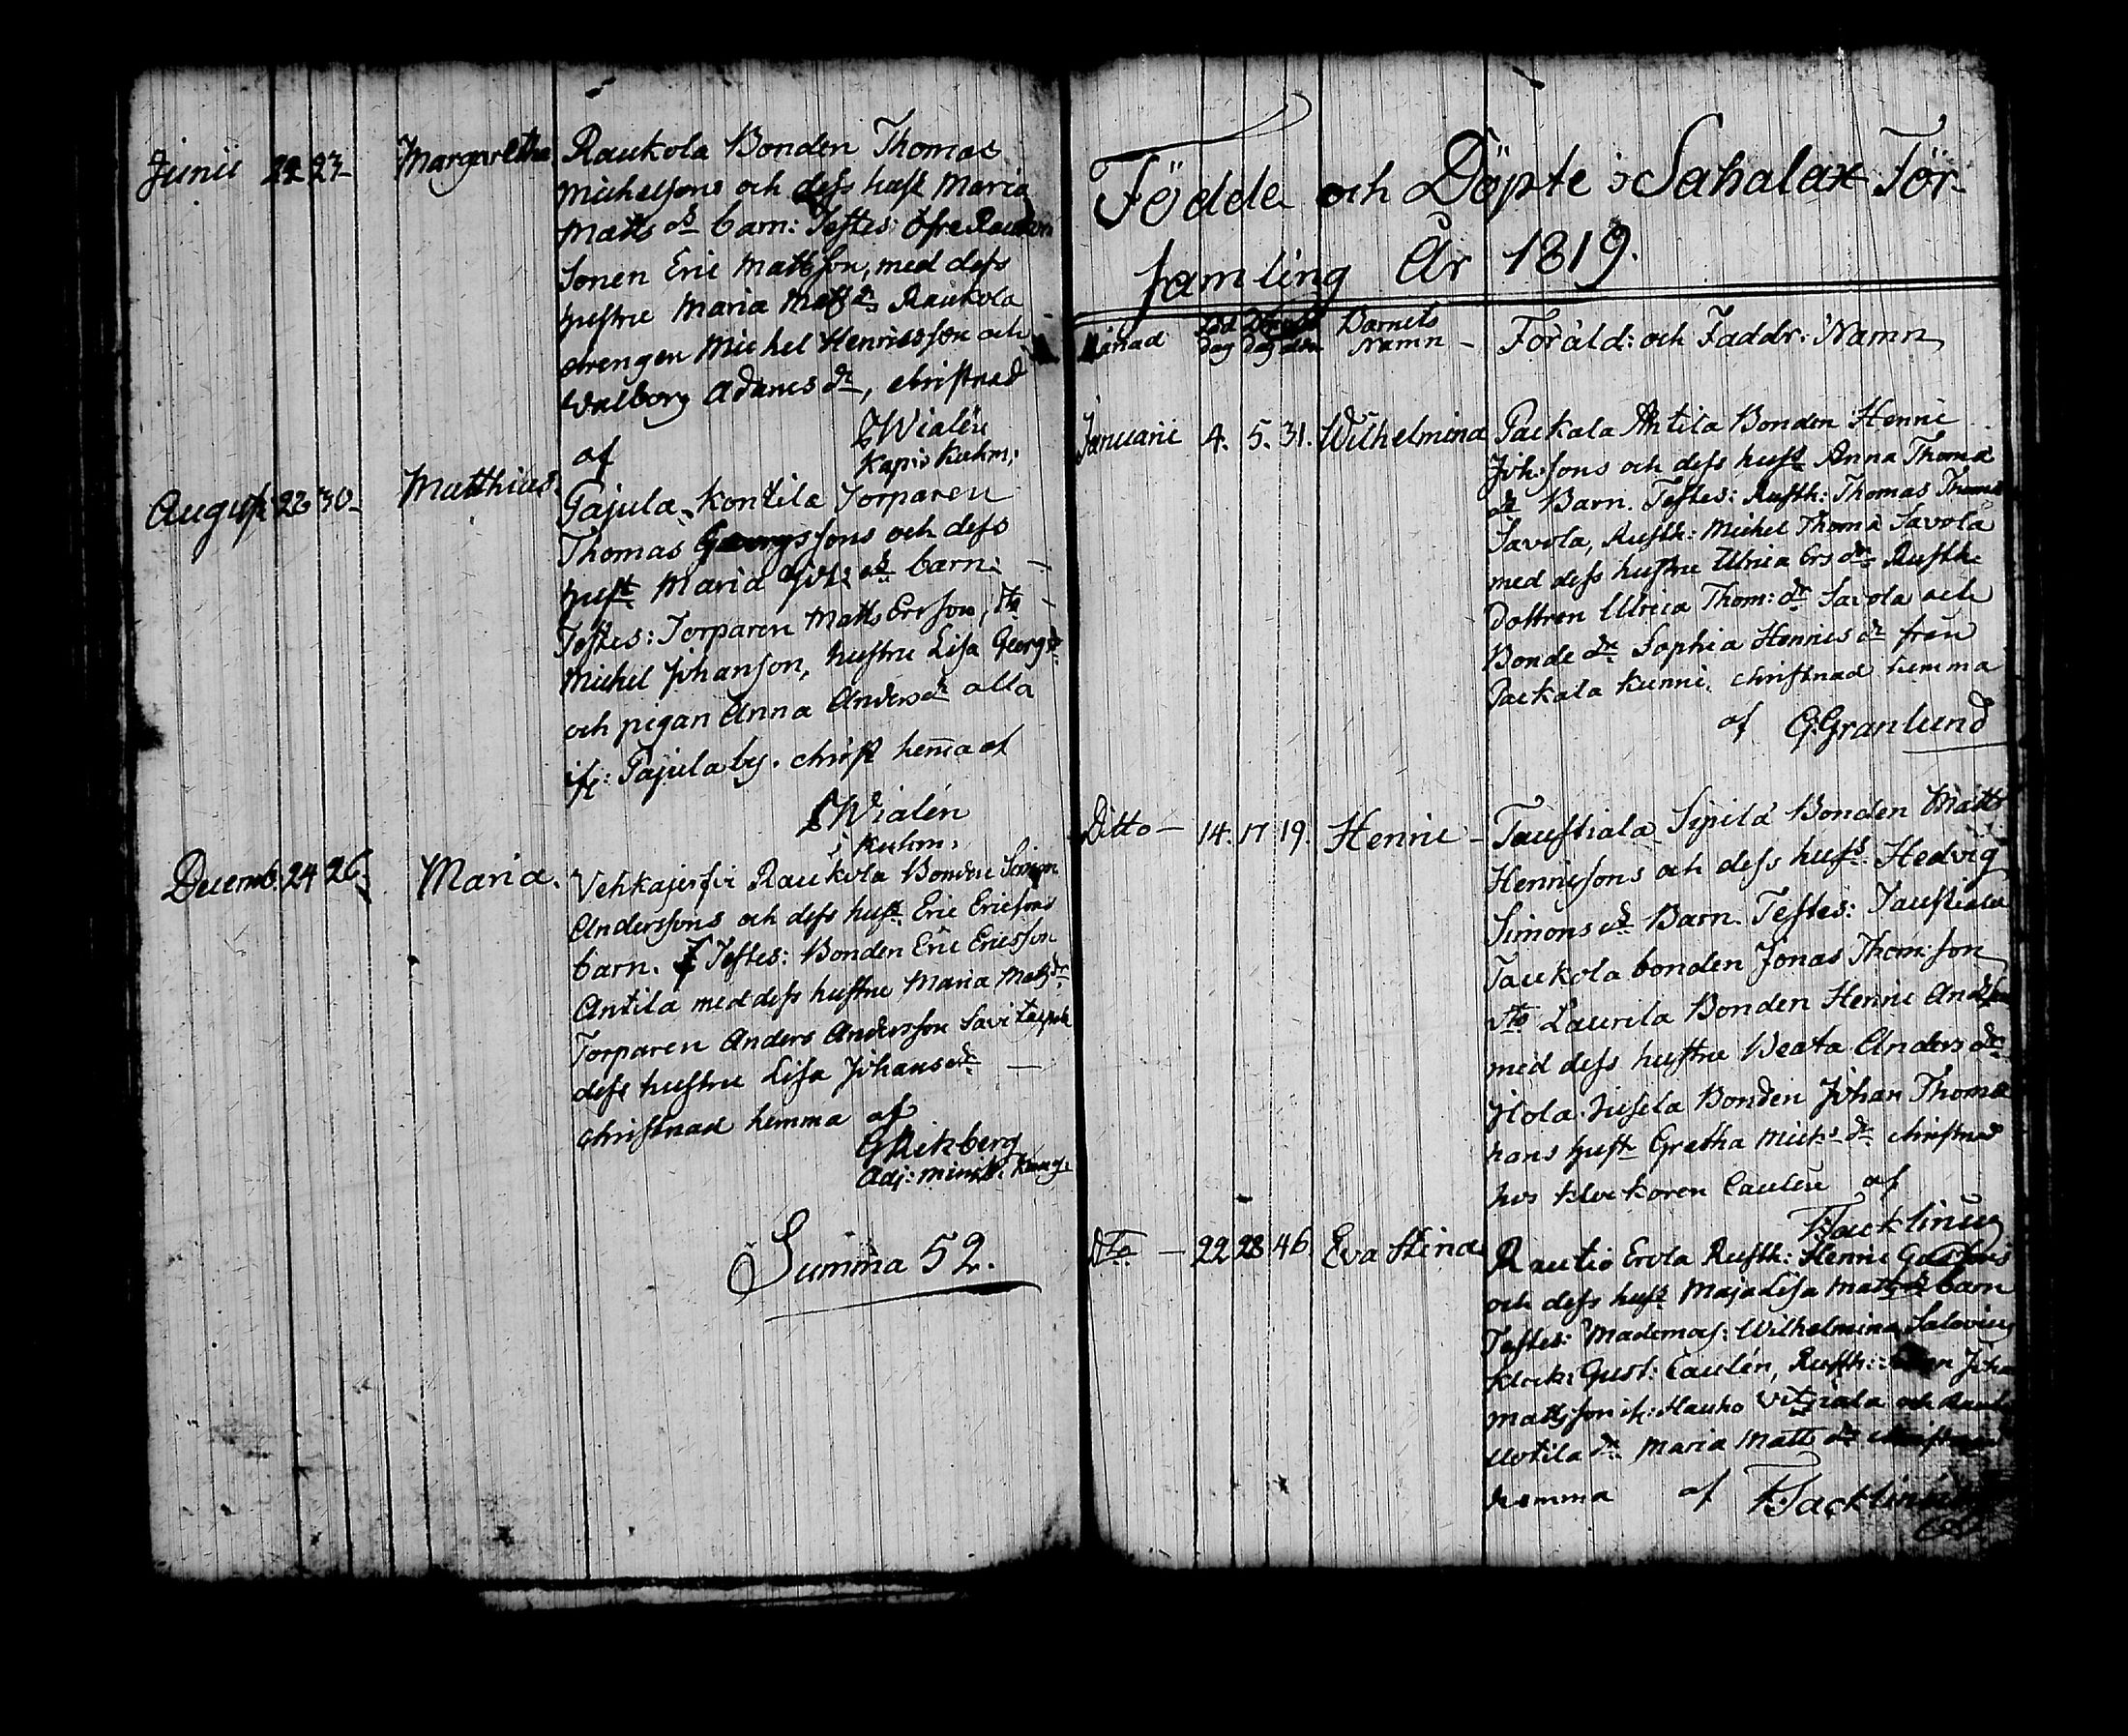 Junii 22 23 Margaretha Raukola Bonden Thomas
Michelsons och dess hust Maria
Matts dr barn: Testes: Öfre
Sonen Eric Mattsson, med dess
hustru Maria Matts dr, Raukola
drengen Michel Henricsson och
Walborg Adams dr, christnad
af Wialén
Kap: i Kuhm:
August 26 30 Matthias Pajula Kontila Torparen
Thomas Georgssons och dess
hust Maria Joh: dr barn: —
Testes: Torparen Matts Ersson, Dto —
Michel Johanson, hustru Lisa Georgs dr
och pigan Anna Anders dr alla
ifr: Pajula by. christ hem̄a af
Wialén
i Kuhm:
Decemb. 24 26. Maria. Vehkajerfvi Raukola Bonden
Anderssons och dess hust Eric Ericsons
barn. Testes: Bonden Eric Ericsson
Antila med dess hustru Maria Matts dr
Torparen Anders Andersson
dess hustru Lisa Johans dr —
christnad hemma af
G Rikberg
Adj: minist:
Summa 52.
Födde och Döpte i Sahalax För-
samling År 1819.
Månad Född dag Döpelse dag Barnets Namn — Föräld: och Faddr: Namn
Januarii 4. 5. 31. Wilhelmina Pakkala Antila Bonden Henric
Joh:sons och dess hust Anna Thoma
dr Barn. Testes: Rusth: Thomas Thoma
Savola, Rusth: Michel Thoma Savola
med dess hustru Ulrica Ers dr Rusth:
dottren Ulrica Thom: dr Savola och
Bonde dr Sophia Henrics dr från
Pakkala Kunni. christnad hemma
af G. Granlund
Ditto — 14. 17 19. Henric — Taustiala Sipilä Bonden Matts
Henricsons och dess hust Hedvig
Simons dr Barn. Testes: Taustiala
Taukola bonden Jonas Thom:son
Dto Laurila Bonden Henric Andsson
med dess hustru Beata Anders dr
Ilola Jussila Bonden Johan Thoma
hans hust Gretha Mich: dr christnad
hos klockoren Caulén af
F. Tacklinus
Dto — 22 28 46 Eva Stina Rautio Erola Rusth: Henric
och dess hust Maja Lisa Matts dr barn
Testes: Mademois: Wilhelmina Salovius
Klock: Gust: Caulén, Rusth: Johan
Mattsson ifr: Hauho Vitziala och
Uotila dr Maria Matts dr christnad
hemma af F. Tacklinus